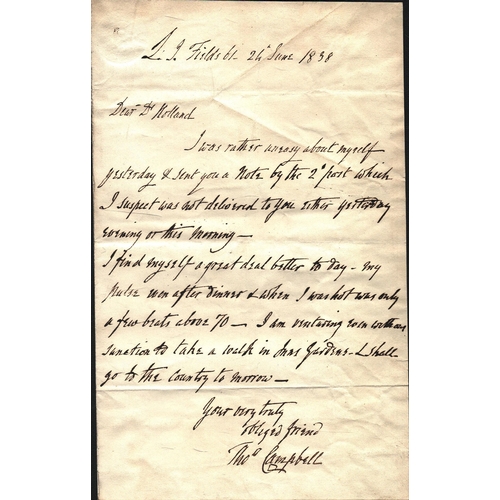 L. I. Fields 61 24 June 1838
Dear Dr Holland
I was rather uneasy about myself
yesterday & sent you a Note by the 2d post which
I suspect was not delivered to you either yesterday
evening or this Morning —
I find myself a great deal better to day — my
pulse even after dinner & when I was hot was only
a few beats above 70 — I am venturing even without
sanction to take a walk in Inns Gardens & shall
go to the Country to morrow —
Your very truly
obliged friend
Thos Campbell